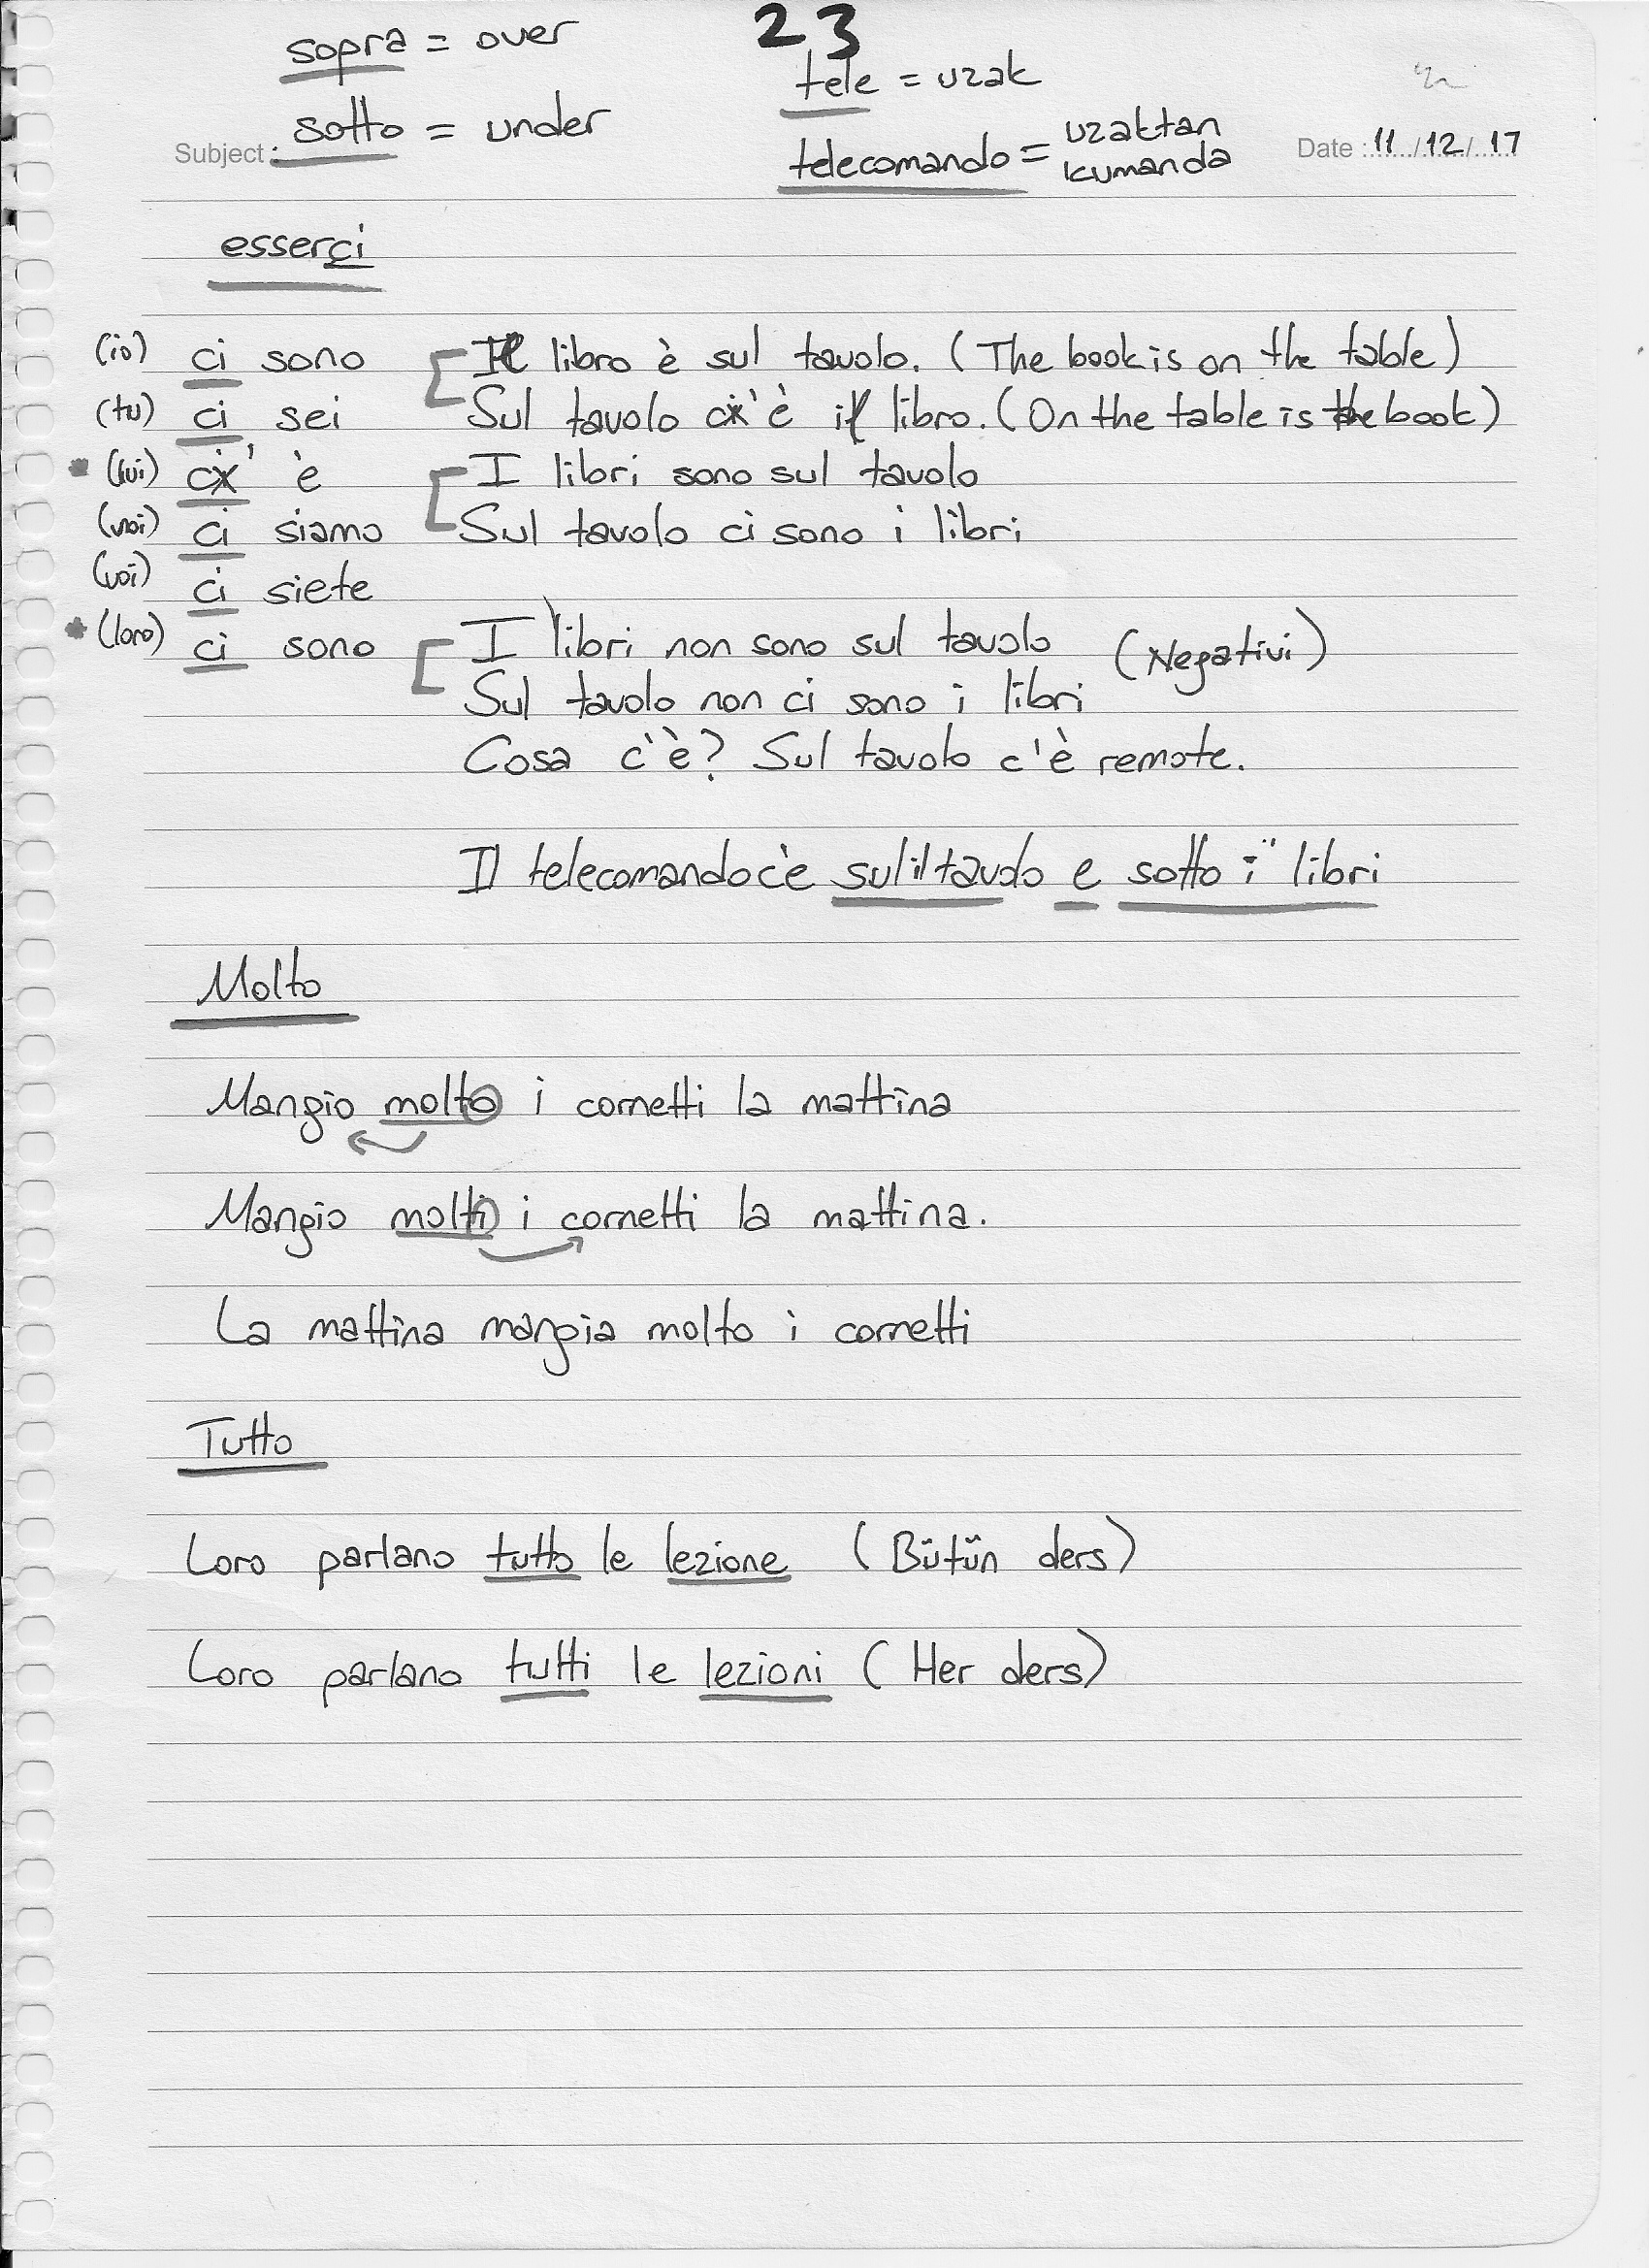 23
sopra = over
sotto = under
tele = uzak
telecomando = uzaktan kumanda
Subject :
Date : 11 / 12 / 17
esserci
(io) ci sono
(tu) ci sei
* (lui) c' è
(noi) ci siamo
(voi) ci siete
* (loro) ci sono
Il libro è sul tavolo. (The book is on the table)
Sul tavolo c'è il libro. (On the table is the book)
I libri sono sul tavolo
Sul tavolo ci sono i libri
I libri non sono sul tavolo (Negativi)
Sul tavolo non ci sono i libri
Cosa c'è? Sul tavolo c'è remote.
Il telecomando c'è sul il tavolo e sotto i libri
Molto
Mangio molto i cornetti la mattina
Mangio molti i cornetti la mattina.
La mattina mangia molto i cornetti
Tutto
Loro parlano tutto le lezione (Bütün ders)
Loro parlano tutti le lezioni (Her ders)